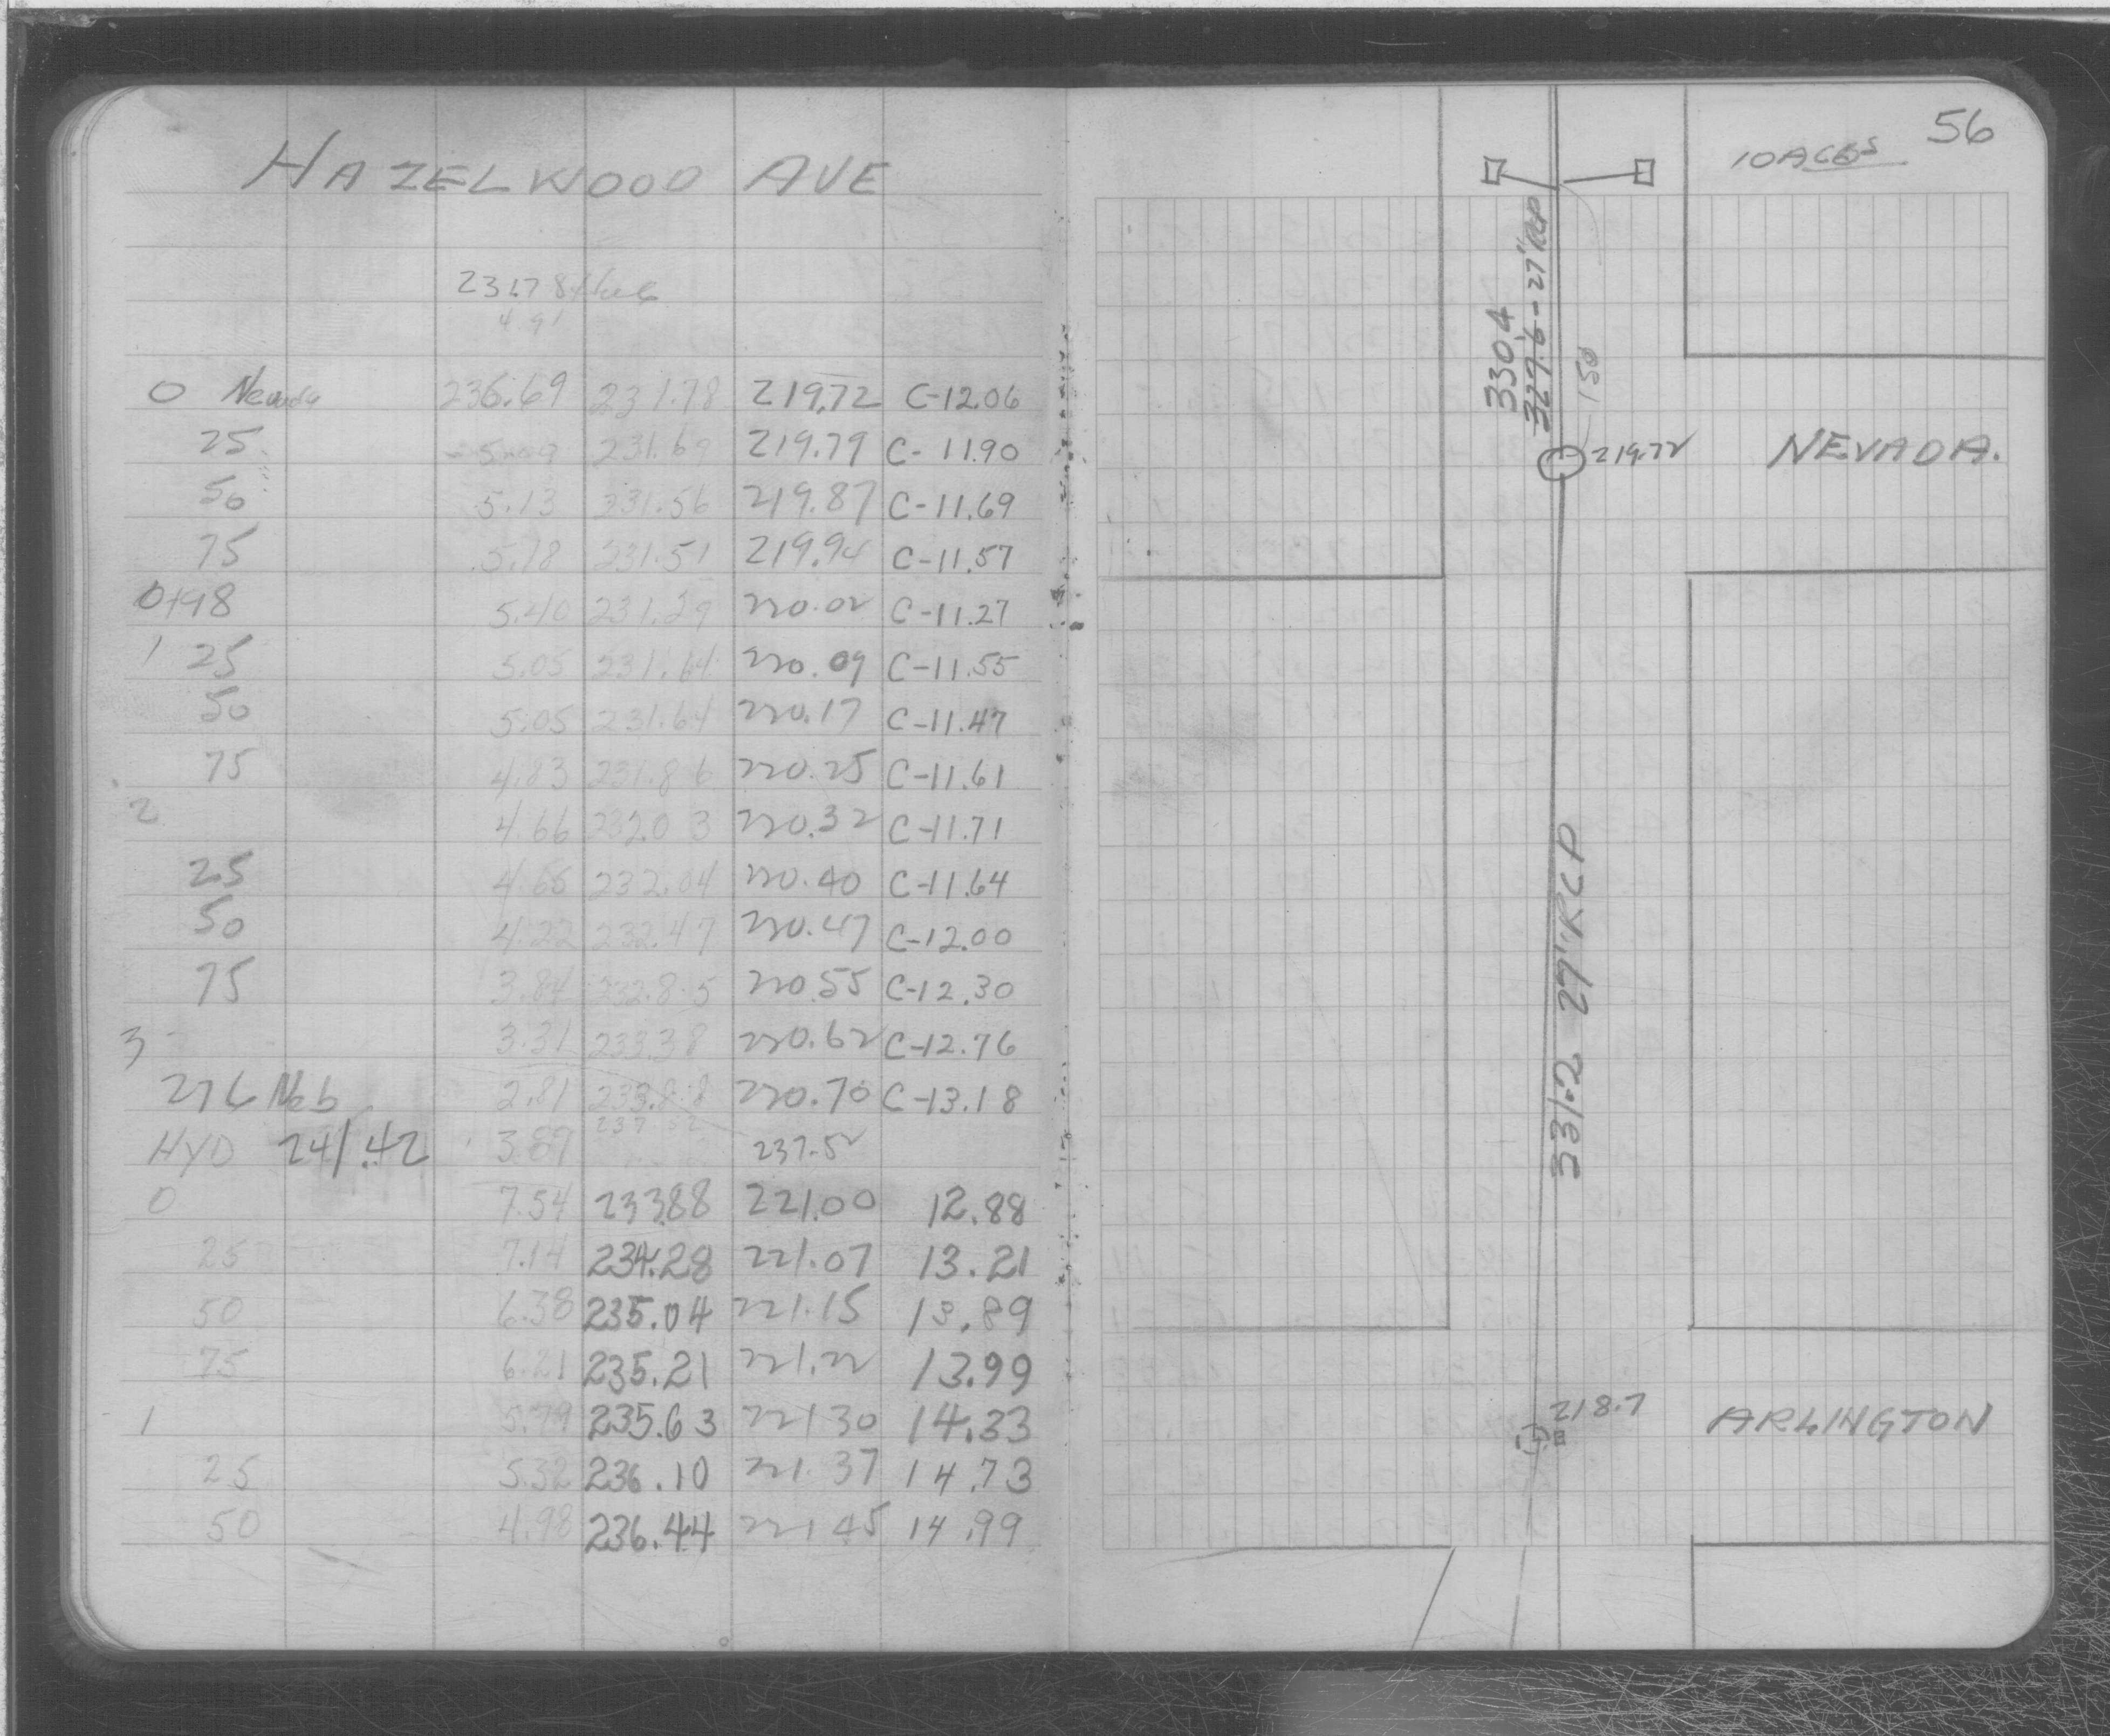 HAZELWOOD AVE
231.78
4.91
0 Nevada 236.69 231.78 219.72 C-12.06
25 5.09 231.60 219.79 C-11.90
50 5.13 231.56 219.87 C-11.69
75 5.18 231.51 219.94 C-11.57
0+98 5.40 231.29 220.02 C-11.27
1 25 5.05 231.64 220.09 C-11.55
50 5.05 231.64 220.17 C-11.47
75 4.83 231.86 220.25 C-11.61
2 4.66 232.03 220.32 C-11.71
25 4.65 232.04 220.40 C-11.64
50 4.22 232.47 220.47 C-12.00
75 3.84 232.85 220.55 C-12.30
3 3.31 233.38 220.62 C-12.76
Neb 2.81 233.88 220.70 C-13.18
237.52
HYD 241.42 3.89 237.52
0 7.54 233.88 221.00 12.88
25 7.14 234.28 221.07 13.21
50 6.38 235.04 221.15 13.89
75 6.21 235.21 221.22 13.99
1 5.79 235.63 221 30 14.33
25 5.32 236.10 221.37 14.73
50 4.98 236.44 221 45 14.99
56
330.4
327.6 - 27" RCP
150
219.72
NEVADA.
331.2 27" RCP
218.7
ARLINGTON